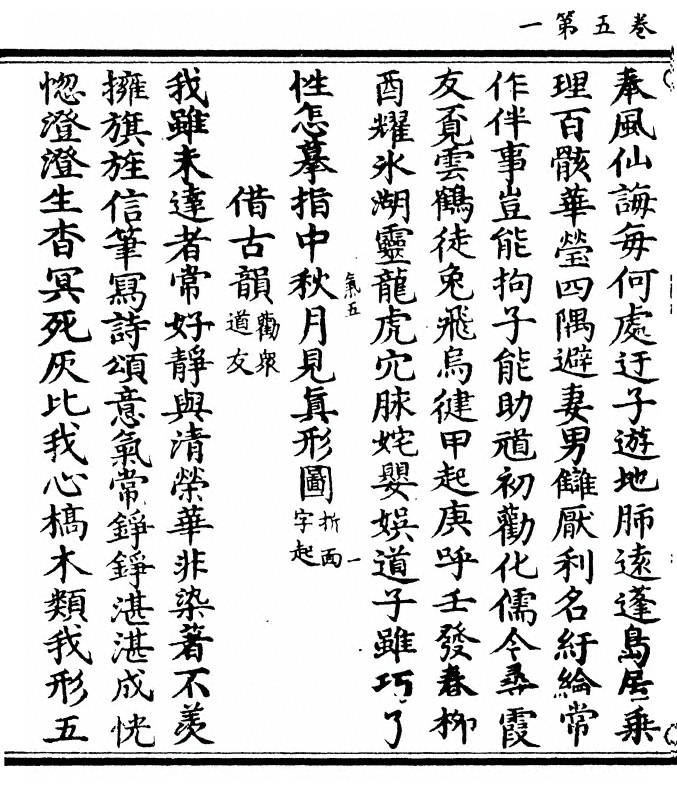 卷五第一
奉風仙誨每何處迂子遊地肺遠蓬島居乗
理百骸華瑩四隅避妻男讎厭利名紆綸常
作伴事豈能拘子能助迊初勸化儒令尋霞
友覔雲鶴徒兔飛烏徤甲起庚呼壬發春柳
酉耀氷湖靈龍虎穴脉姹嬰娛道子雖巧了
性怎摹指中秋月見真形圖折一字起面
氣五
借古韻勸衆道友
我雖未達者常好靜與清榮華非染著不羨
擁旗旌信筆寫詩頌意氣常錚錚湛湛成恍
惚澄澄生杳冥死灰比我心槁木類我形五